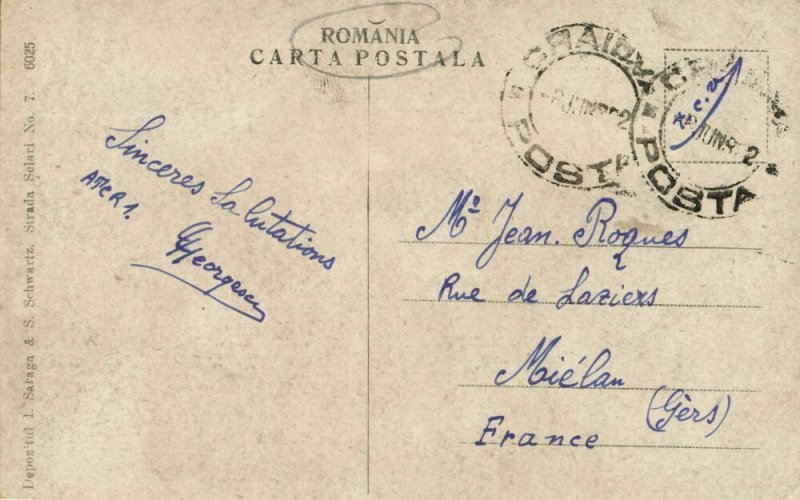 ROMÂNIA
CARTA POSTALA
Depozitul I. Saraga & S. Schwartz, Strada Selari No. 7. 6025
Sinceres Salutations
Georgescu
CRAIOVA
POSTA
JUN
CRAIOVA
POSTA
JUN
Mr Jean. Roques
Rue de Laziers
Miélan
(Gèrs)
France